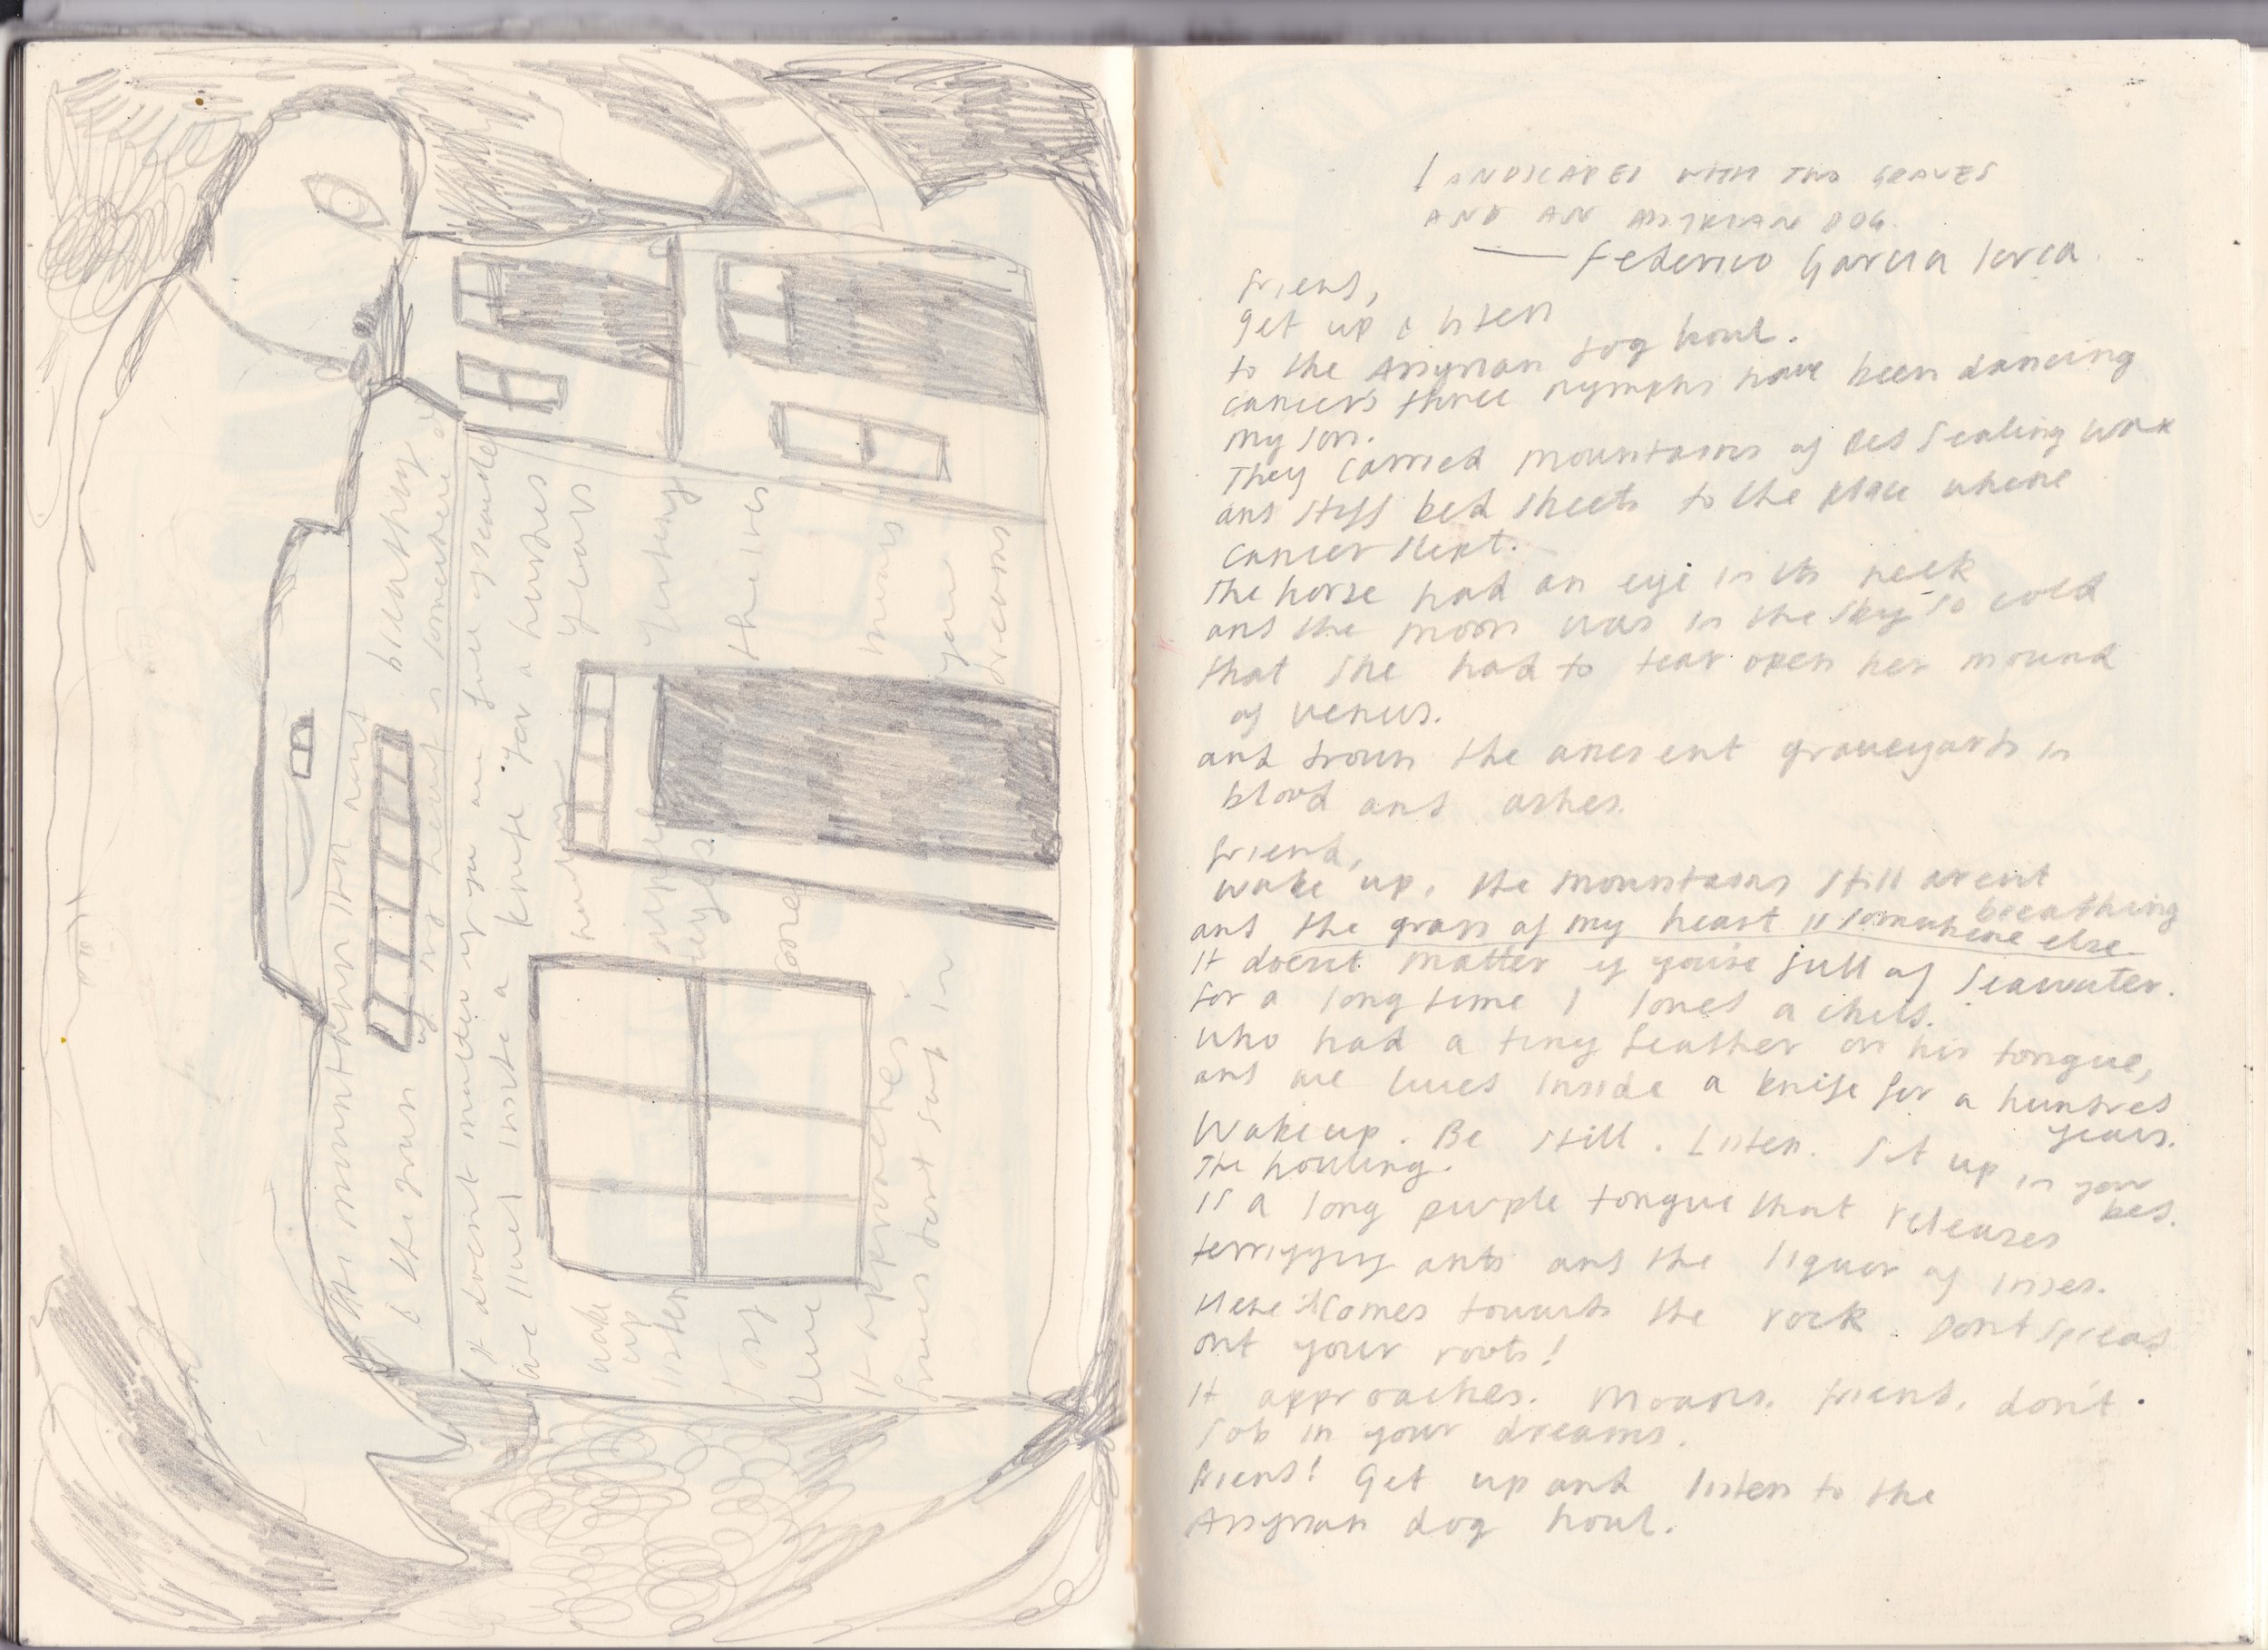 the mountains still arent breathing
& the grass of my heart is somewhere
It doesnt matter if you are full of seawater
we lived inside a knife for a hundred
years
wake
up
listen
howling
purple
the ires
It approaches
moans
friend dont sob in your
dreams
LANDSCAPES WITH TWO GRAVES
AND AN ASSYRIAN DOG.
— Federico Garcia Lorca.
friend,
get up & listen
to the Assyrian dog howl.
cancer's three nymphs have been dancing
my son.
They carried mountains of Red Sealing wax
and stiff bed sheets to the place where
cancer slept.
The horse had an eye in its neck
and the moon was in the sky so cold
that she had to tear open her mound
of venus.
and drown the ancient graveyards in
blood and ashes.
friend,
wake up, the mountains still arent
breathing
and the grass of my heart is somewhere else
It doesnt matter if you're full of seawater.
for a long time I loved a child.
who had a tiny feather on his tongue,
and we lived inside a knife for a hundred
years.
Wake up. Be still. Listen. Sit up in your
bed.
The howling.
is a long purple tongue that releases
terrifying ants and the liquor of irises.
Here it comes towards the rock. Dont Spread
out your roots!
It approaches. Moans. friend, don't
sob in your dreams.
friend! Get up and listen to the
Assyrian dog howl.